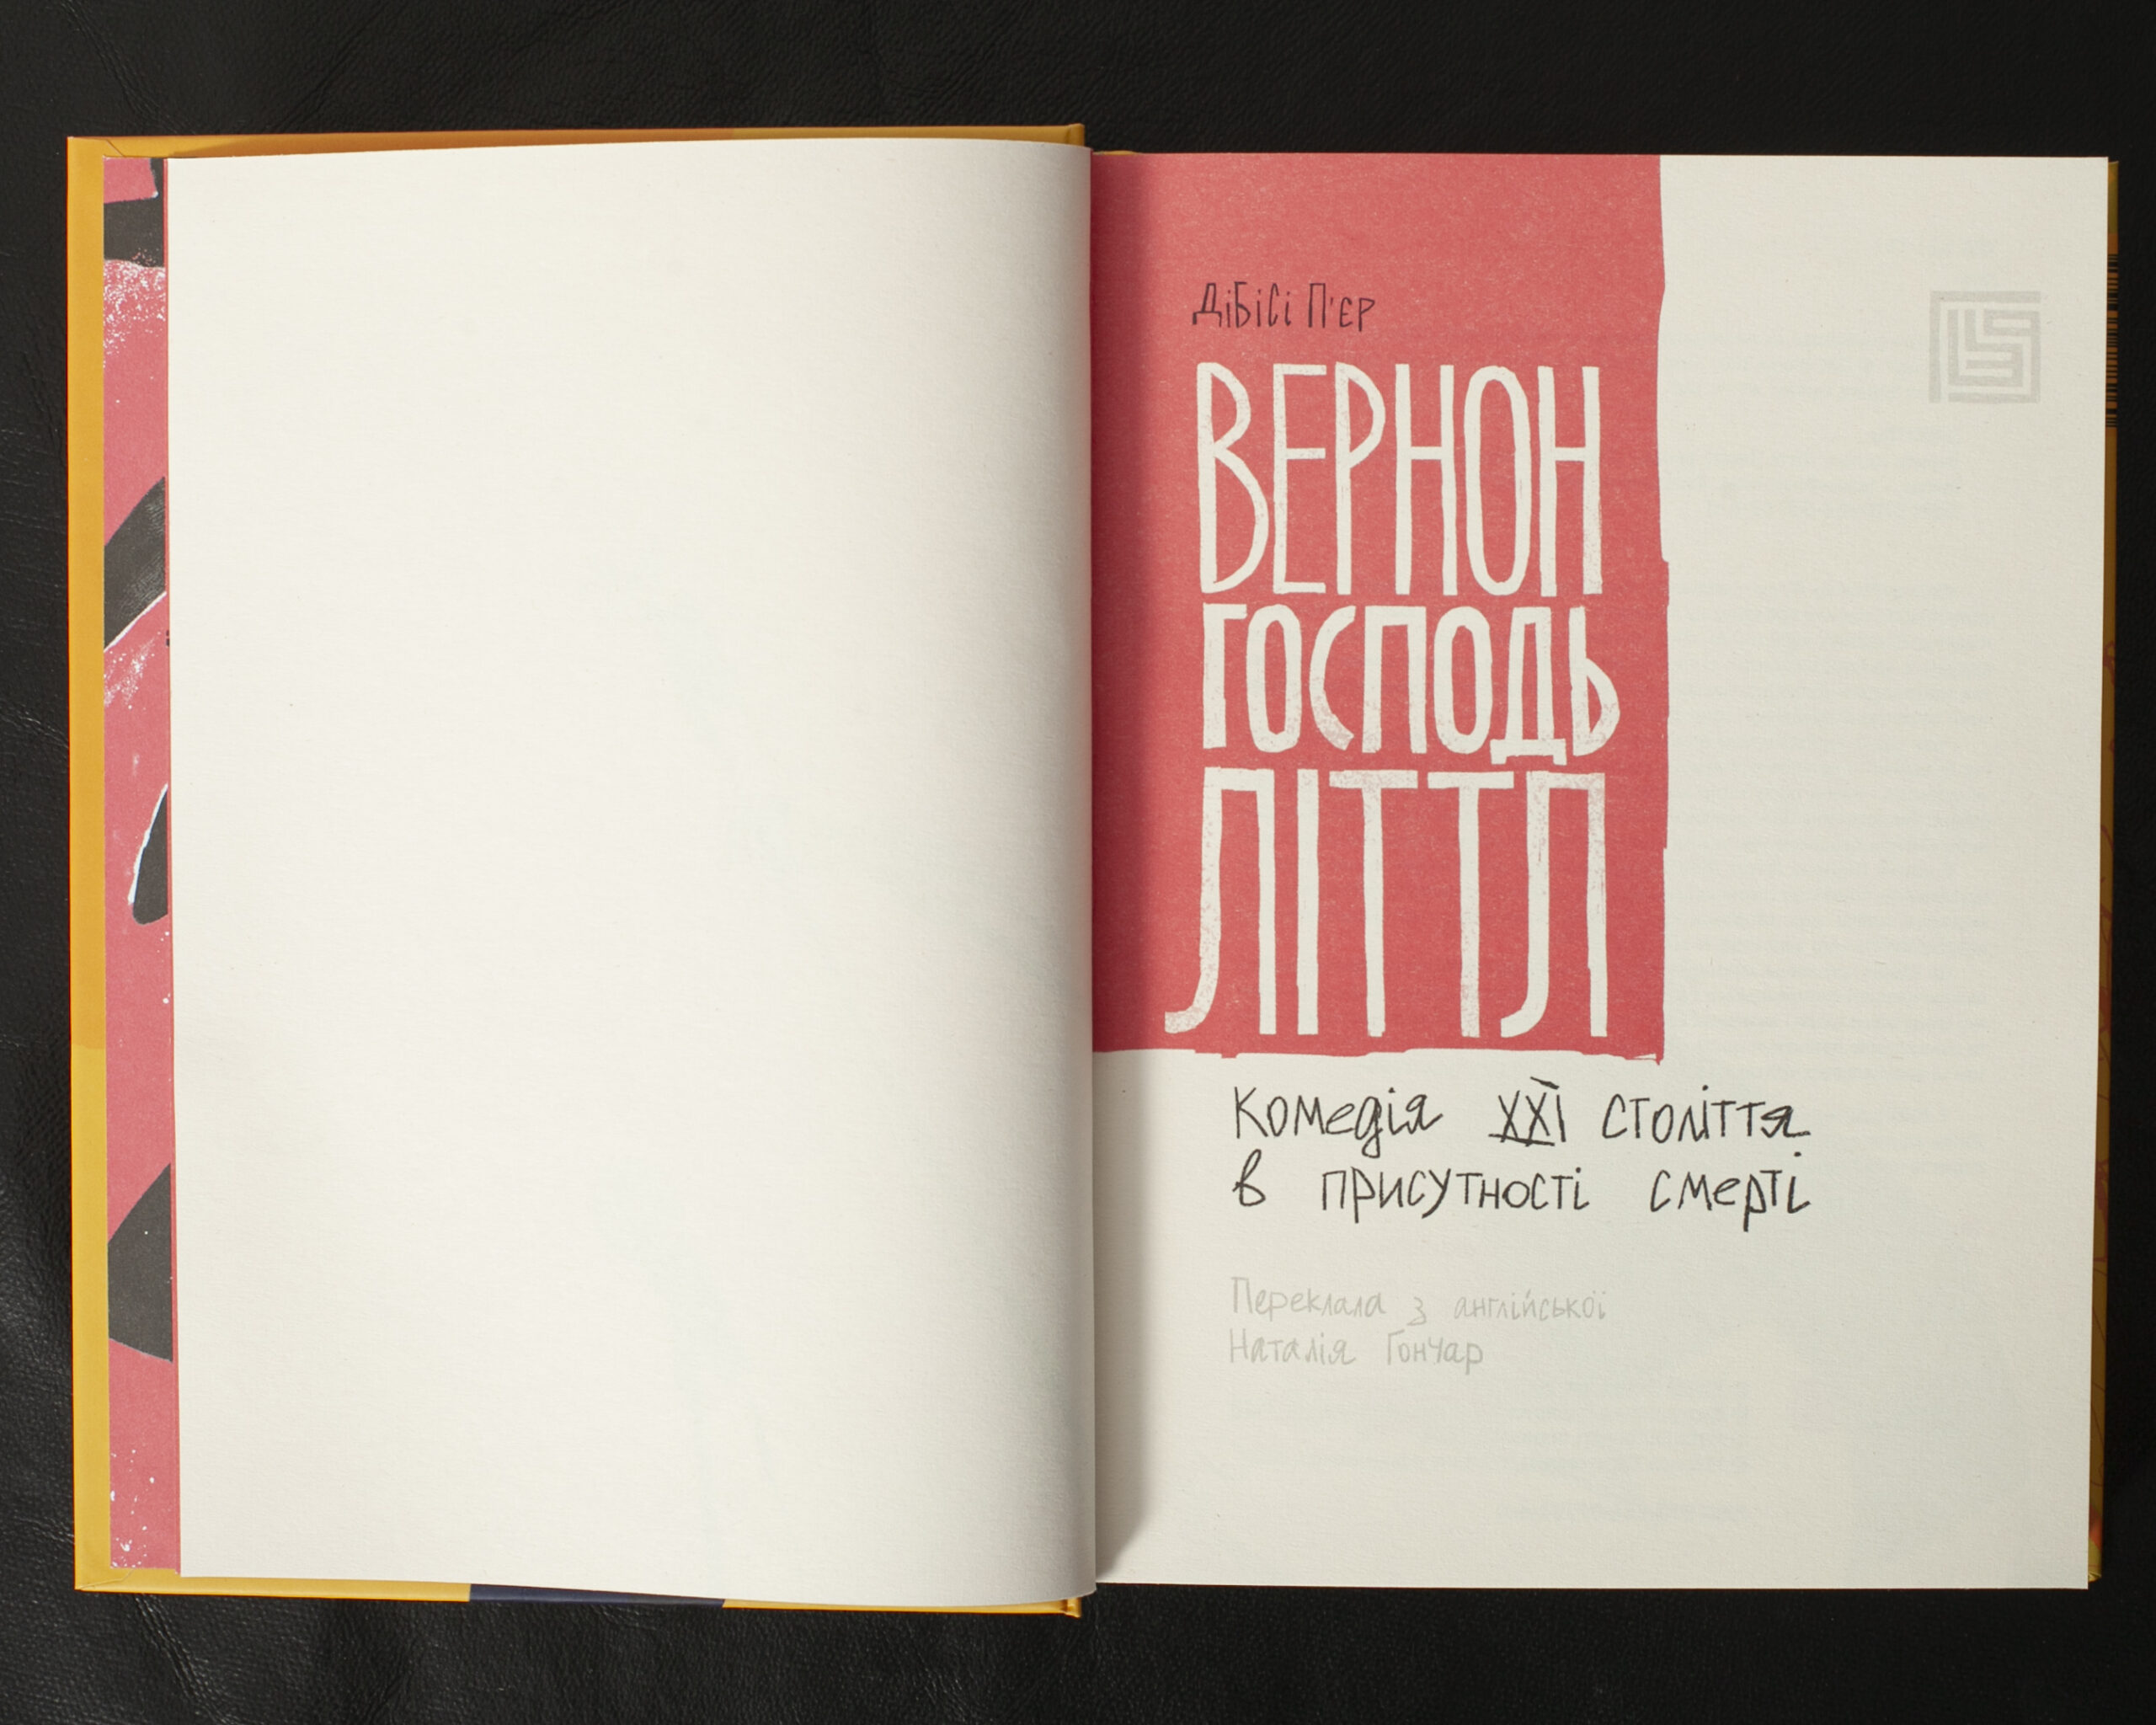 ДІБІСІ П'ЄР
ВЕРНОН
ГОСПОДЬ
ЛІТТЛ
Комедія XXI століття
в присутності смерті
Переклала з англійської
Наталія Гончар